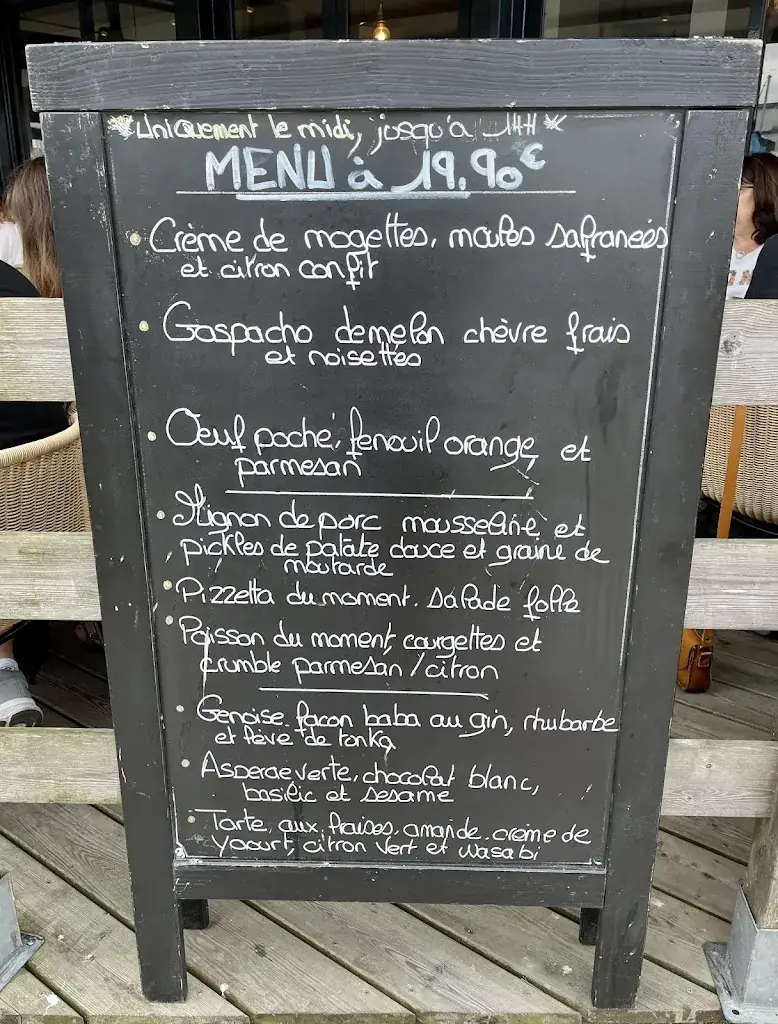 *Uniquement le midi, jusqu'à 14H*
MENU à 19.90€
Crème de mogettes, moules safranées
et citron confit
Gaspacho de melon chèvre frais
et noisettes
Œuf poché, fenouil orange et
parmesan
Mignon de porc mousseline et
pickles de patate douce et graine de
moutarde
Pizzetta du moment. salade folle
Poisson du moment, courgettes et
crumble parmesan / citron
Genoise façon baba au gin, rhubarbe
et fève de tonka
Asperge verte, chocolat blanc,
basilic et sesame
Tarte aux fraises, amande, crème de
yaourt, citron vert et wasabi